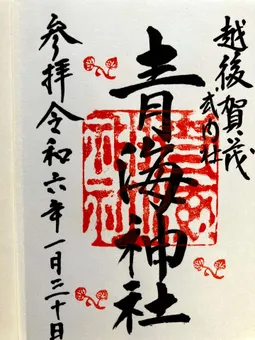 越後賀茂
式内社
青海神社
参拝令和六年一月三十日